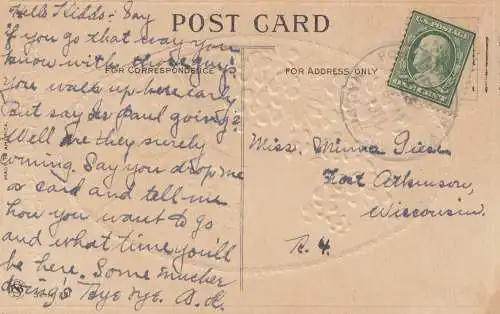 POST CARD
FOR CORRESPONDENCE
FOR ADDRESS ONLY
U.S. POSTAGE
Hello Kiddo: Say
if you go that way you
know with those guys
you walk up here early
But say is Paul going?
Well are they surely
coming. Say you drop me
a card and tell me
how you want to go
and what time you'll
be here. Some
doing's Bye bye. A. K.
Miss. Minna
Fort Atkinson,
Wisconsin.
R. 4.